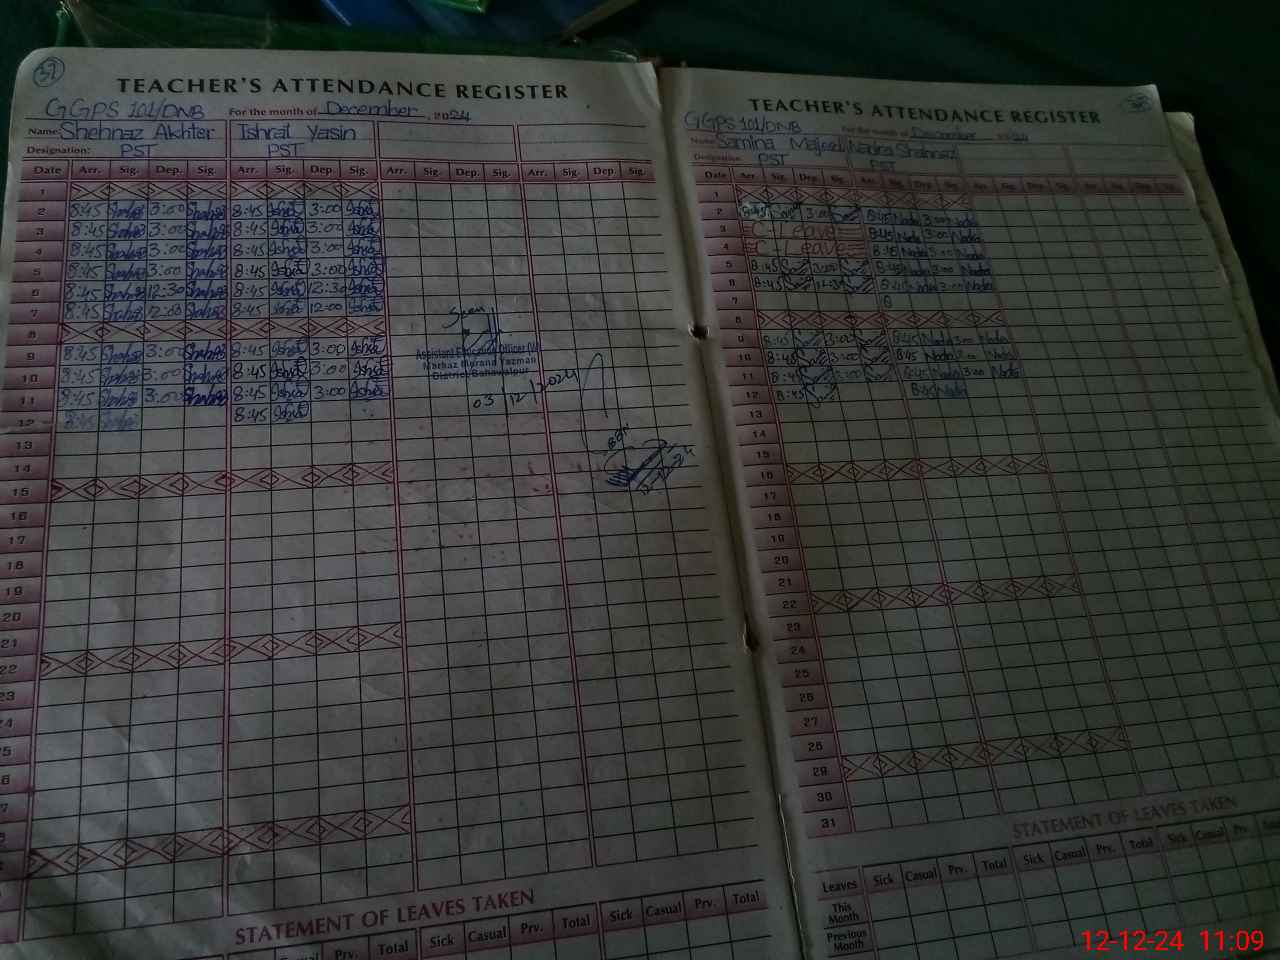 37
TEACHER'S ATTENDANCE REGISTER
GGPS 101/DNB For the month of December, 2024
Name: Shehnaz Akhter Ishrat Yasin
Designation: PST PST
Date Arr. Sig. Dep. Sig. Arr. Sig. Dep. Sig. Arr. Sig. Dep. Sig. Arr. Sig. Dep. Sig.
1
2 8:45 3:00 8:45 3:00
3 8:45 3:00 8:45 3:00
4 8:45 3:00 8:45 3:00
5 8:45 3:00 8:45 3:00
6 8:45 12:30 8:45 12:30
7 8:45 12:00 8:45 12:00
8
9 8:45 3:00 8:45 3:00
10 8:45 3:00 8:45 3:00
11 8:45 3:00 8:45 3:00
12 8:45 8:45
13
14
15
16
17
18
19
20
21
22
23
24
25
Assistant Education Officer (W)
Markaz Marana Yazman
District Bahawalpur
03/12/2024
STATEMENT OF LEAVES TAKEN
Prv. Total Sick Casual Prv. Total Sick Casual Prv. Total
TEACHER'S ATTENDANCE REGISTER
GGPS 101/DNB For the month of December 2024
Name: Samina Majeed Nadra Shahnaz
Designation: PST PST
Date Arr. Sig. Dep. Sig. Arr. Sig. Dep. Sig.
1
2 8:45 3:00 8:45 Nadra 3:00 Nadra
3 C-Leave 8:45 Nadra 3:00 Nadra
4 C-Leave 8:45 Nadra 3:00 Nadra
5 8:45 3:00 8:45 Nadra 3:00 Nadra
6 8:45 12:30 8:45 Nadra 3:00 Nadra
7
8
9 8:45 3:00 8:45 Nadra 3:00 Nadra
10 8:45 3:00 8:45 Nadra 3:00 Nadra
11 8:45 3:00 8:45 Nadra 3:00 Nadra
12 8:45 8:45 Nadra
13
14
15
16
17
18
19
20
21
22
23
24
25
26
27
28
29
30
31
STATEMENT OF LEAVES TAKEN
Leaves Sick Casual Prv. Total Sick Casual Prv. Total Sick Casual Prv.
This Month
Previous Month
12-12-24 11:09